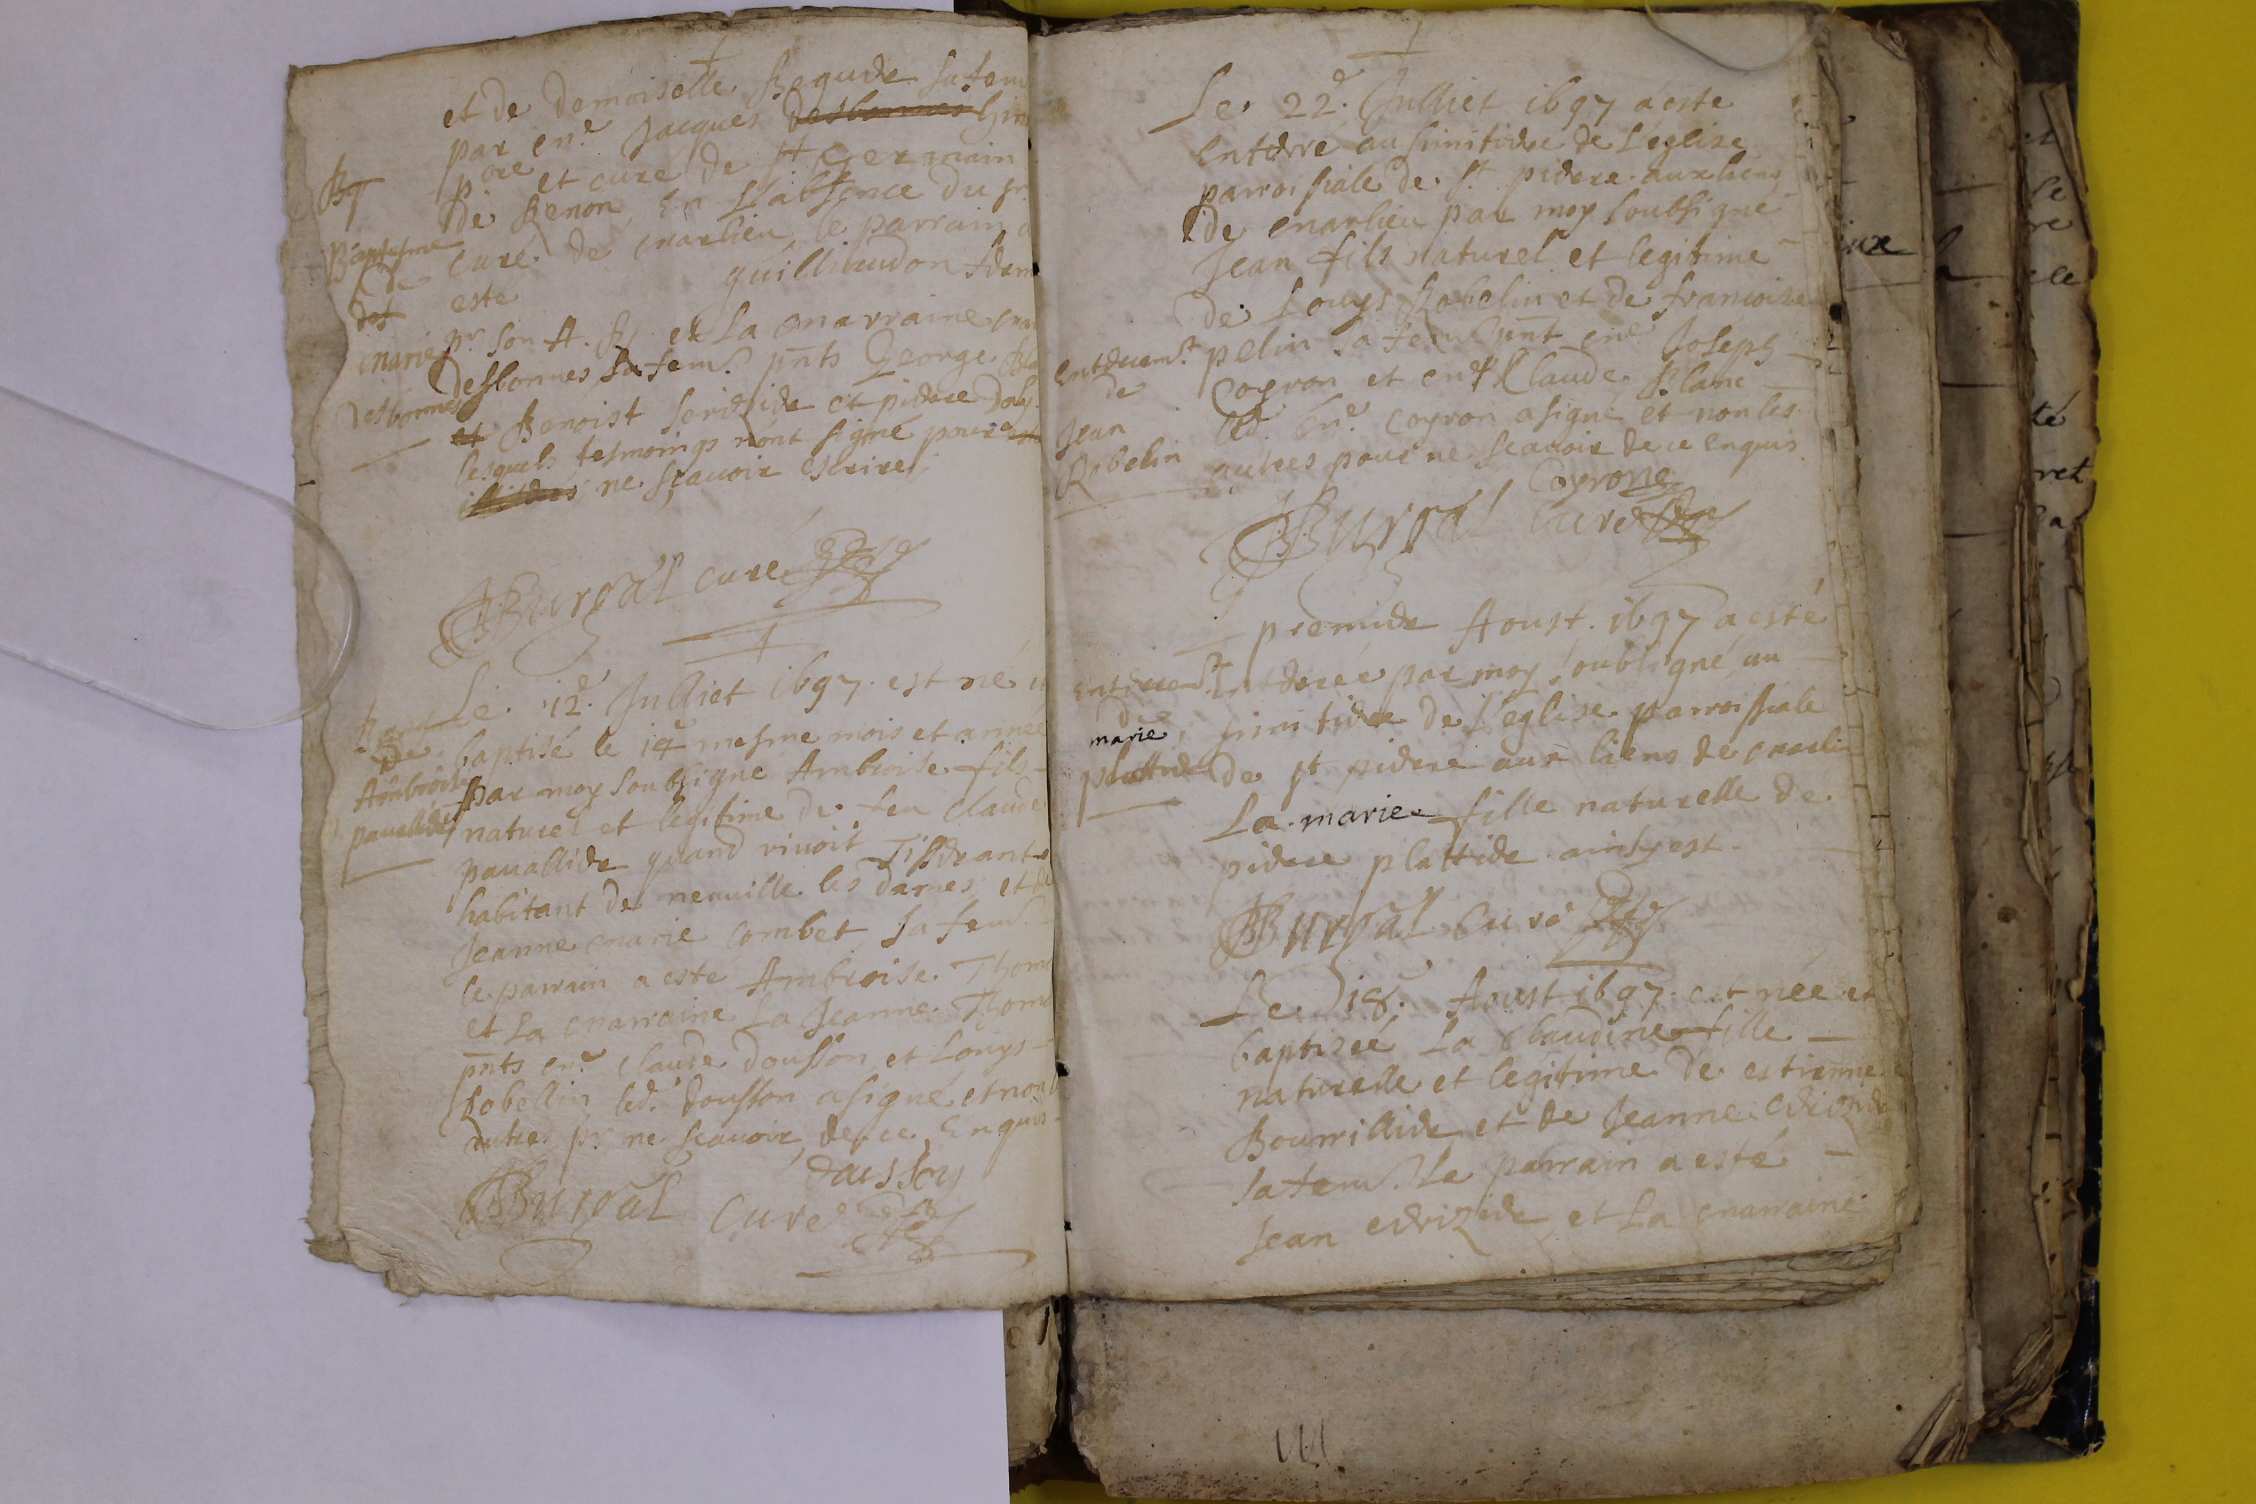 et de demoiselle sa fem
par m.e Jacques desbonnes
p.bre et cure de st Germain
de Renon, En L'absence du sr
Curé de marlieu, le parrain a
este guillaudon
pr son A. R. et La marraine
desbonnes sa fem.e pnts George
et Benoist et pierre
lesquels tesmoings n'ont signé pour
ne scavoir escrire
Burgal curé
Bapteme
de
marie
desbonnes
Le 12.e Julliet 1697 est né
baptisé le 14e mesme mois et année
par moy soubsigné Ambroise fils
naturel et legitime de feu claude
pauallier quand vivoit Tisserant
habitant de neuville les dames et de
Jeanne marie Combet sa fem.e
le parrain a esté Ambroise Thom
et La marraine La Jeanne Thom
pnts m.e Claude dousson et Louys
Robellin led. dousson a signé et non
autres pr ne scavoir de ce Enquis
Burgal Curé
de
Ambroise
pauallier
Le 22.e Julliet 1697 a este
Enterré au simitiere de L'eglise
parroissiale de st pierre aux liens
de marlieu par moy soubsigné
Jean fils naturel et legitime
de Louys Robelin et de francoise
pelin sa fem.e pnt m.e Joseph
Coyron et m.e Claude Blanc
led. m.e Coyron a signé et non les
autres pour ne scavoir de ce enquis
Coyron
Burgal Curé
Enterrem.t
de
Jean
Robelin
premier Aoust 1697 a esté
Enterrée par moy soubsigné au
simitiere de L'eglise parroissiale
de st pierre aux liens de marlieu
La marie fille naturelle de
pierre plattier ainsy est
Burgal Curé
Enterrem.t
de
marie
plattier
Le 18.e Aoust 1697 est née et
baptisée La Claudine fille
naturelle et legitime de estienne
Bourrillier et de Jeanne
sa fem.e Le parrain a esté
Jean et La marraine